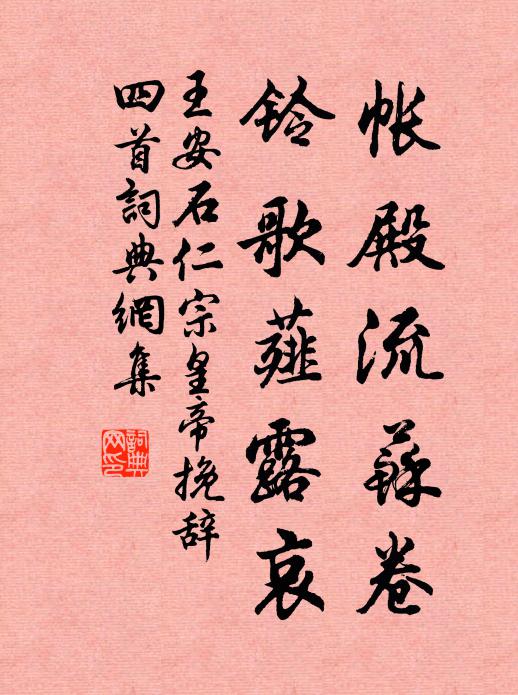 帐殿流蘇卷
铃歌薤露哀
王安石仁宗皇帝挽辞
四首詞典網集
詞典網印